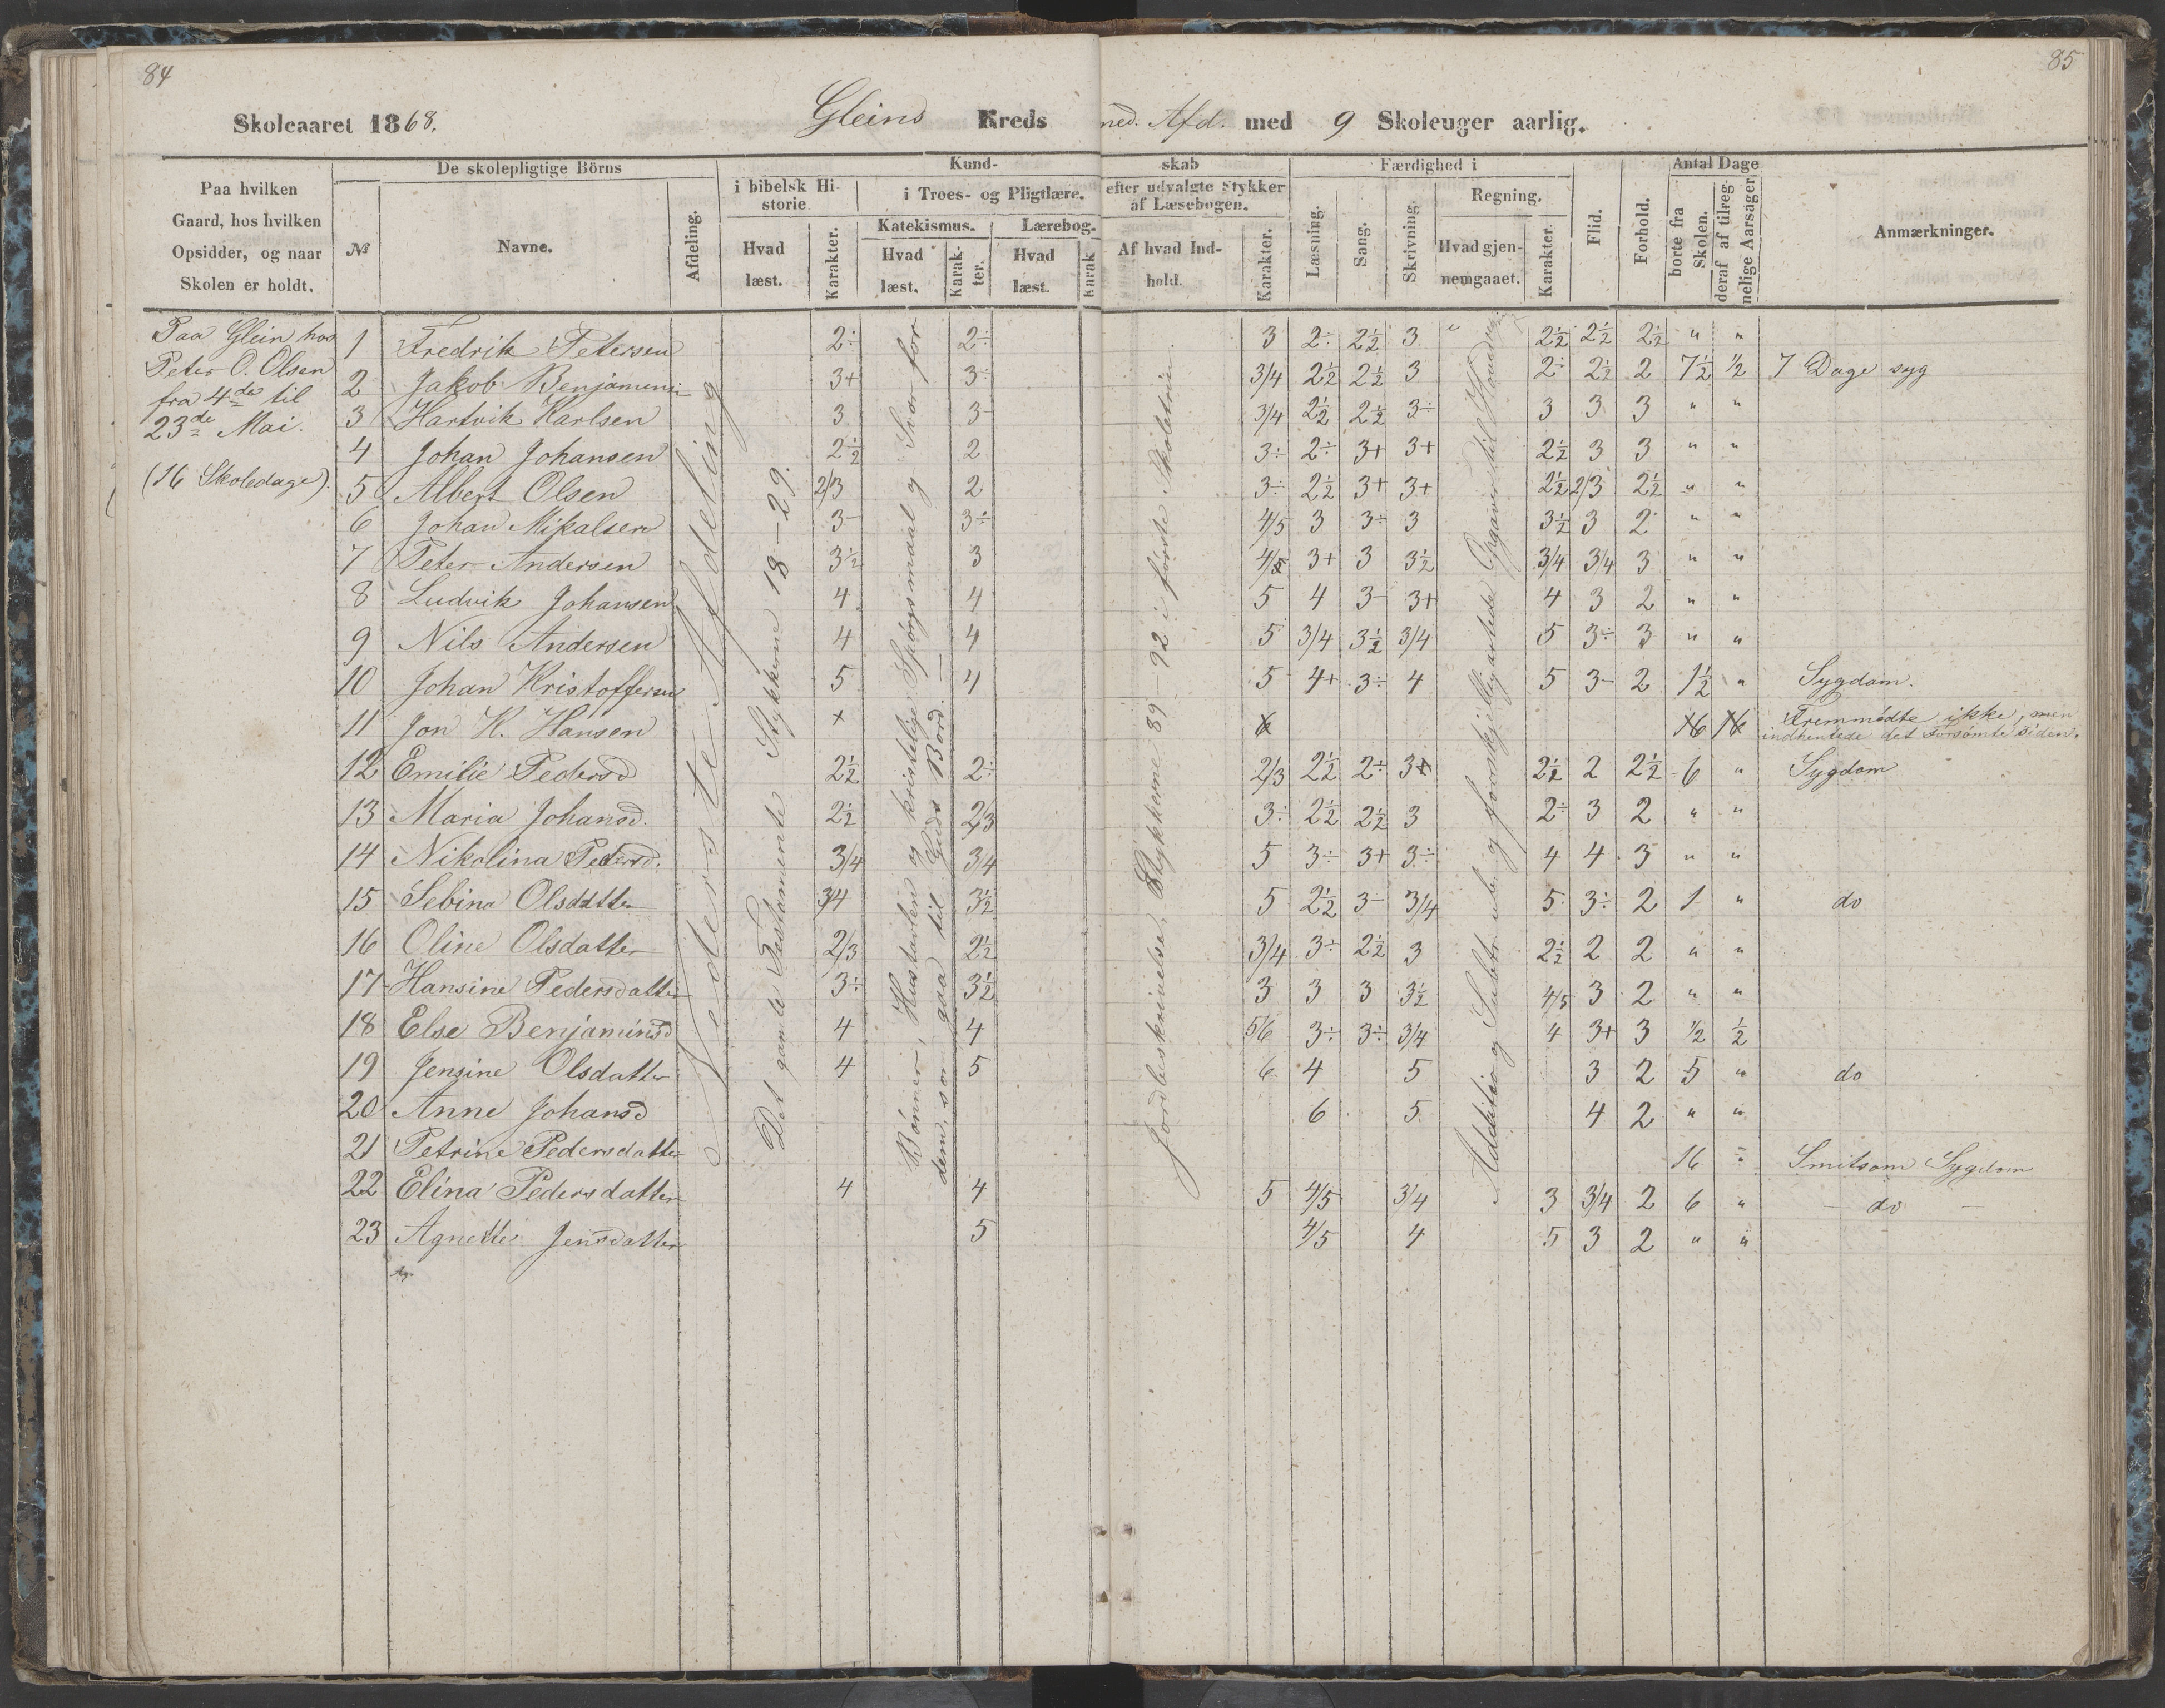 84
85
Skoleaaret 1868. Gleins Kreds ned. Afd. med 9 Skoleuger aarlig.
Paa hvilken Gaard, hos hvilken Opsidder, og naar Skolen er holdt.
De skolepligtige Börns
№
Navne.
Afdeling.
Kundskab
i bibelsk Historie
Hvad læst.
Karakter.
i Troes- og Pligtlære.
Katekismus.
Hvad læst.
Karakter.
Lærebog.
Hvad læst.
Karak
efter udvalgte Stykker af Læsebogen.
Af hvad Indhold.
Karakter.
Færdighed i
Læsning.
Sang.
Skrivning.
Regning.
Hvad gjennemgaaet.
Karakter.
Flid.
Forhold.
Antal Dage
borte fra Skolen.
deraf af tilregnelige Aarsager
Anmærkninger.
Paa Glein hos
Peter O. Olsen
fra 4de til
23de Mai.
(16 Skoledage).
Nederste Afdeling
Det gamle Testamente Stykkerne 18–29.
Bønner, Hustavlen og kristelige Spørgsmaal og Svar for
dem, som gaa til Guds Bord.
Jordbeskrivelse, Stykkerne 89–92 i første Skoletrin.
Addition og Subtr. ub. og forskjelligartede Opgaver til
1 Fredrik Petersen 2÷ 2÷ 3 2÷ 2½ 3 2½ 2½ 2½ " "
2 Jakob Benjamins 3+ 3÷ 3/4 2½ 2½ 3 2÷ 2½ 2 7½ ½ 7 Dage syg
3 Hartvik Karlsen 3 3 3/4 2½ 2½ 3÷ 3 3 3 " "
4 Johan Johansen 2½ 2 3÷ 2÷ 3+ 3+ 2½ 3 3 " "
5 Albert Olsen 2/3 2 3÷ 2½ 3+ 3+ 2½ 2/3 2½ " "
6 Johan Mikalsen 3- 3÷ 4/5 3 3÷ 3 3½ 3 2 " "
7 Peter Andersen 3½ 3 4/5 3+ 3 3½ 3/4 3/4 3 " "
8 Ludvik Johansen 4 4 5 4 3- 3+ 4 3 2 " "
9 Nils Andersen 4 4 5 3/4 3½ 3/4 5 3÷ 3 " "
10 Johan Kristoffersen 5 4 5 4+ 3÷ 4 5 3- 2 1½ " Sygdom.
11 Jon K. Hansen × 6 16 16 Fremmødte ikke, men
indhentede det Forsømte siden.
12 Emilie Pedersd 2½ 2÷ 2/3 2½ 2÷ 3+ 2½ 2 2½ 6 " Sygdom
13 Maria Johansd. 2½ 2/3 3÷ 2½ 2½ 3 2÷ 3 2 " "
14 Nikolina Pedersd. 3/4 3/4 5 3÷ 3+ 3÷ 4 4 3 " "
15 Sebina Olsdatter 3/4 3½ 5 2½ 3- 3/4 5 3÷ 2 1 " do
16 Oline Olsdatter 2/3 2½ 3/4 3÷ 2½ 3 2½ 2 2 " "
17 Hansine Pedersdatter 3÷ 3½ 3 3 3 3½ 4/5 3 2 " "
18 Else Benjaminsd 4 4 5/6 3÷ 3÷ 3/4 4 3+ 3 ½ ½
19 Jensine Olsdatter 4 5 6 4 5 3 2 5 " do
20 Anne Johansd 6 5 4 2 " "
21 Petrine Pedersdatter 16 " Smitsom Sygdom
22 Elina Pedersdatter 4 4 5 4/5 3/4 3 3/4 2 6 " – do –
23 Agnette Jensdatter 5 4/5 4 5 3 2 " "